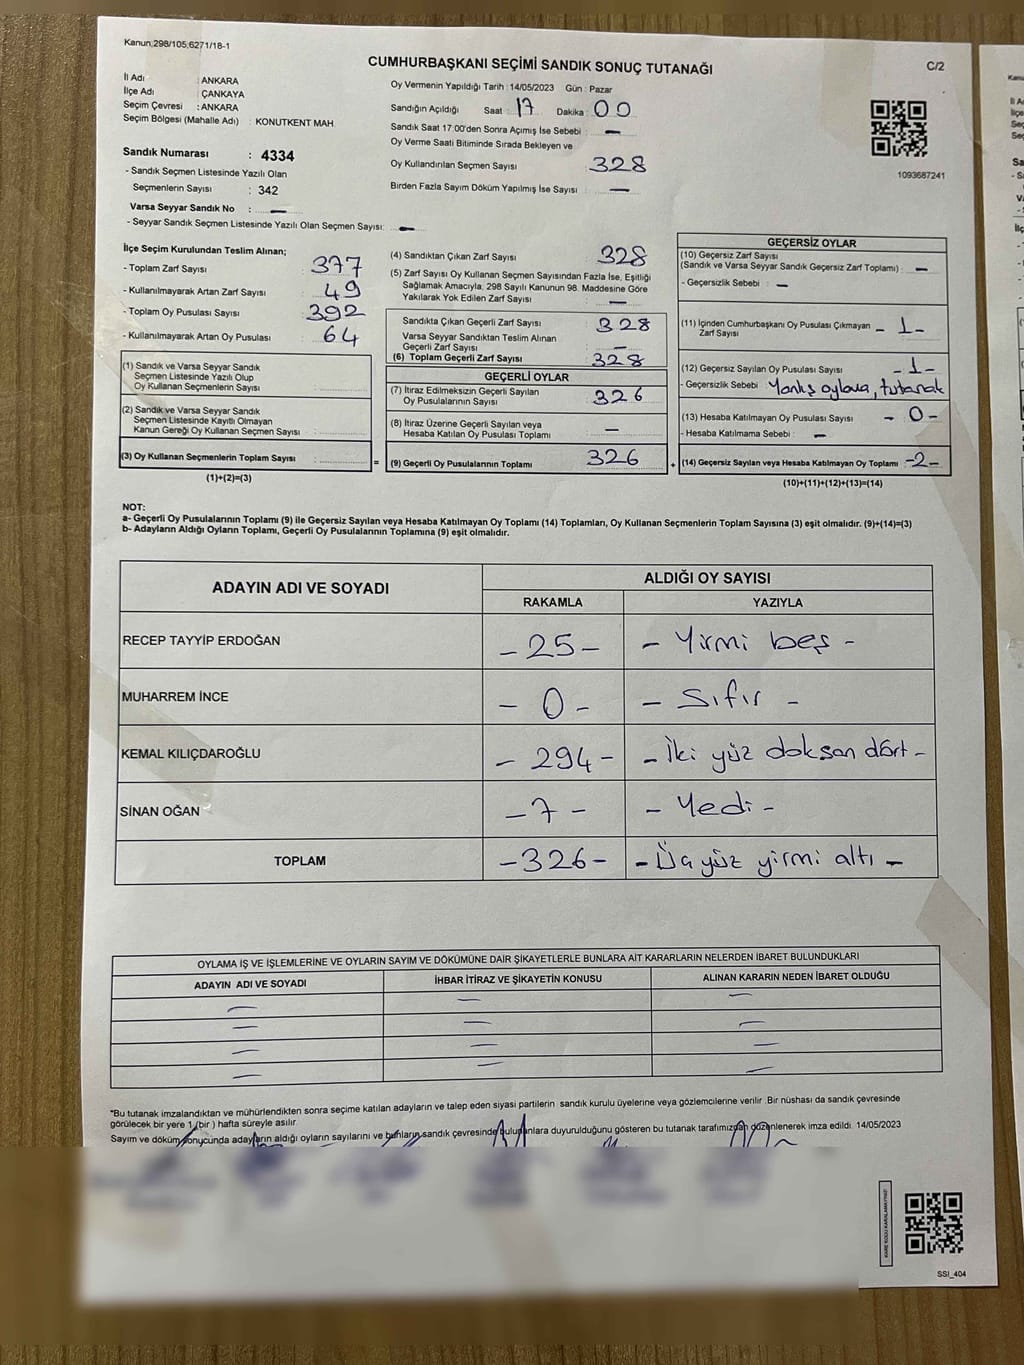 Kanun,298/105,6271/18-1
CUMHURBAŞKANI SEÇİMİ SANDIK SONUÇ TUTANAĞI
C/2
İl Adı : ANKARA
İlçe Adı : ÇANKAYA
Seçim Çevresi : ANKARA
Seçim Bölgesi (Mahalle Adı) : KONUTKENT MAH.
Sandık Numarası : 4334
- Sandık Seçmen Listesinde Yazılı Olan
Seçmenlerin Sayısı : 342
Varsa Seyyar Sandık No : —
- Seyyar Sandık Seçmen Listesinde Yazılı Olan Seçmen Sayısı: —
Oy Vermenin Yapıldığı Tarih : 14/05/2023 Gün : Pazar
Sandığın Açıldığı Saat : 17 Dakika : 00
Sandık Saat 17:00'den Sonra Açımış İse Sebebi : —
Oy Verme Saati Bitiminde Sırada Bekleyen ve
Oy Kullandırılan Seçmen Sayısı : 328
Birden Fazla Sayım Döküm Yapılmış İse Sayısı : —
1093687241
İlçe Seçim Kurulundan Teslim Alınan;
- Toplam Zarf Sayısı : 377
- Kullanılmayarak Artan Zarf Sayısı : 49
- Toplam Oy Pusulası Sayısı : 392
- Kullanılmayarak Artan Oy Pusulası : 64
(1) Sandık ve Varsa Seyyar Sandık
Seçmen Listesinde Yazılı Olup
Oy Kullanan Seçmenlerin Sayısı :
(2) Sandık ve Varsa Seyyar Sandık
Seçmen Listesinde Kayıtlı Olmayan
Kanun Gereği Oy Kullanan Seçmen Sayısı :
(3) Oy Kullanan Seçmenlerin Toplam Sayısı :
(1)+(2)=(3)
=
(4) Sandıktan Çıkan Zarf Sayısı : 328
(5) Zarf Sayısı Oy Kullanan Seçmen Sayısından Fazla İse, Eşitliği
Sağlamak Amacıyla, 298 Sayılı Kanunun 98. Maddesine Göre
Yakılarak Yok Edilen Zarf Sayısı : —
Sandıkta Çıkan Geçerli Zarf Sayısı : 328
Varsa Seyyar Sandıktan Teslim Alınan
Geçerli Zarf Sayısı : —
(6) Toplam Geçerli Zarf Sayısı : 328
GEÇERLİ OYLAR
(7) İtiraz Edilmeksizin Geçerli Sayılan
Oy Pusulalarının Sayısı : 326
(8) İtiraz Üzerine Geçerli Sayılan veya
Hesaba Katılan Oy Pusulası Toplamı : —
(9) Geçerli Oy Pusulalarının Toplamı : 326
+
GEÇERSİZ OYLAR
(10) Geçersiz Zarf Sayısı
(Sandık ve Varsa Seyyar Sandık Geçersiz Zarf Toplamı) : —
- Geçersizlik Sebebi : —
(11) İçinden Cumhurbaşkanı Oy Pusulası Çıkmayan
Zarf Sayısı : - 1 -
(12) Geçersiz Sayılan Oy Pusulası Sayısı : - 1 -
Geçersizlik Sebebi : Yanlış oylama, tutanak
(13) Hesaba Katılmayan Oy Pusulası Sayısı : - 0 -
- Hesaba Katılmama Sebebi : —
(14) Geçersiz Sayılan veya Hesaba Katılmayan Oy Toplamı : -2-
(10)+(11)+(12)+(13)=(14)
NOT:
a- Geçerli Oy Pusulalarının Toplamı (9) ile Geçersiz Sayılan veya Hesaba Katılmayan Oy Toplamı (14) Toplamları, Oy Kullanan Seçmenlerin Toplam Sayısına (3) eşit olmalıdır. (9)+(14)=(3)
b- Adayların Aldığı Oyların Toplamı, Geçerli Oy Pusulalarının Toplamına (9) eşit olmalıdır.
ADAYIN ADI VE SOYADI
ALDIĞI OY SAYISI
RAKAMLA YAZIYLA
RECEP TAYYİP ERDOĞAN - 25 - - Yirmi beş -
MUHARREM İNCE - 0 - - Sıfır -
KEMAL KILIÇDAROĞLU - 294 - - İki yüz doksan dört -
SİNAN OĞAN - 7 - - Yedi -
TOPLAM - 326 - - Üç yüz yirmi altı -
OYLAMA İŞ VE İŞLEMLERİNE VE OYLARIN SAYIM VE DÖKÜMÜNE DAİR ŞİKAYETLERLE BUNLARA AİT KARARLARIN NELERDEN İBARET BULUNDUKLARI
ADAYIN ADI VE SOYADI İHBAR İTİRAZ VE ŞİKAYETİN KONUSU ALINAN KARARIN NEDEN İBARET OLDUĞU
— — —
— — —
— — —
— — —
*Bu tutanak imzalandıktan ve mühürlendikten sonra seçime katılan adayların ve talep eden siyasi partilerin sandık kurulu üyelerine veya gözlemcilerine verilir. Bir nüshası da sandık çevresinde
görülecek bir yere 1 (bir) hafta süreyle asılır.
Sayım ve döküm sonucunda adayların aldığı oyların sayılarını ve bunların sandık çevresinde bulunanlara duyurulduğunu gösteren bu tutanak tarafımızdan düzenlenerek imza edildi. 14/05/2023
KARE KODU KARALAMAYINIZ!
SSI_404